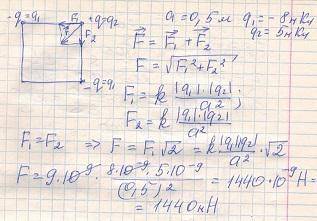 -q=q₁ F₁ +q=q₂ a=0,5 м q₁=-8нКл
F F₂ q₂=5нКл
F⃗=F⃗₁+F⃗₂
F=√F₁²+F₂²
-q=q₁
F₁=k |q₁|·|q₂|/a² ;
F₂=k |q₁|·|q₂|/a²
F₁=F₂ ⇒ F=F₁√2=k|q₁||q₂|/a² ·√2
F=9·10⁻⁹·8·10⁻⁹·5·10⁻⁹/(0,5)²=1440·10⁻⁹Н=
=1440нН